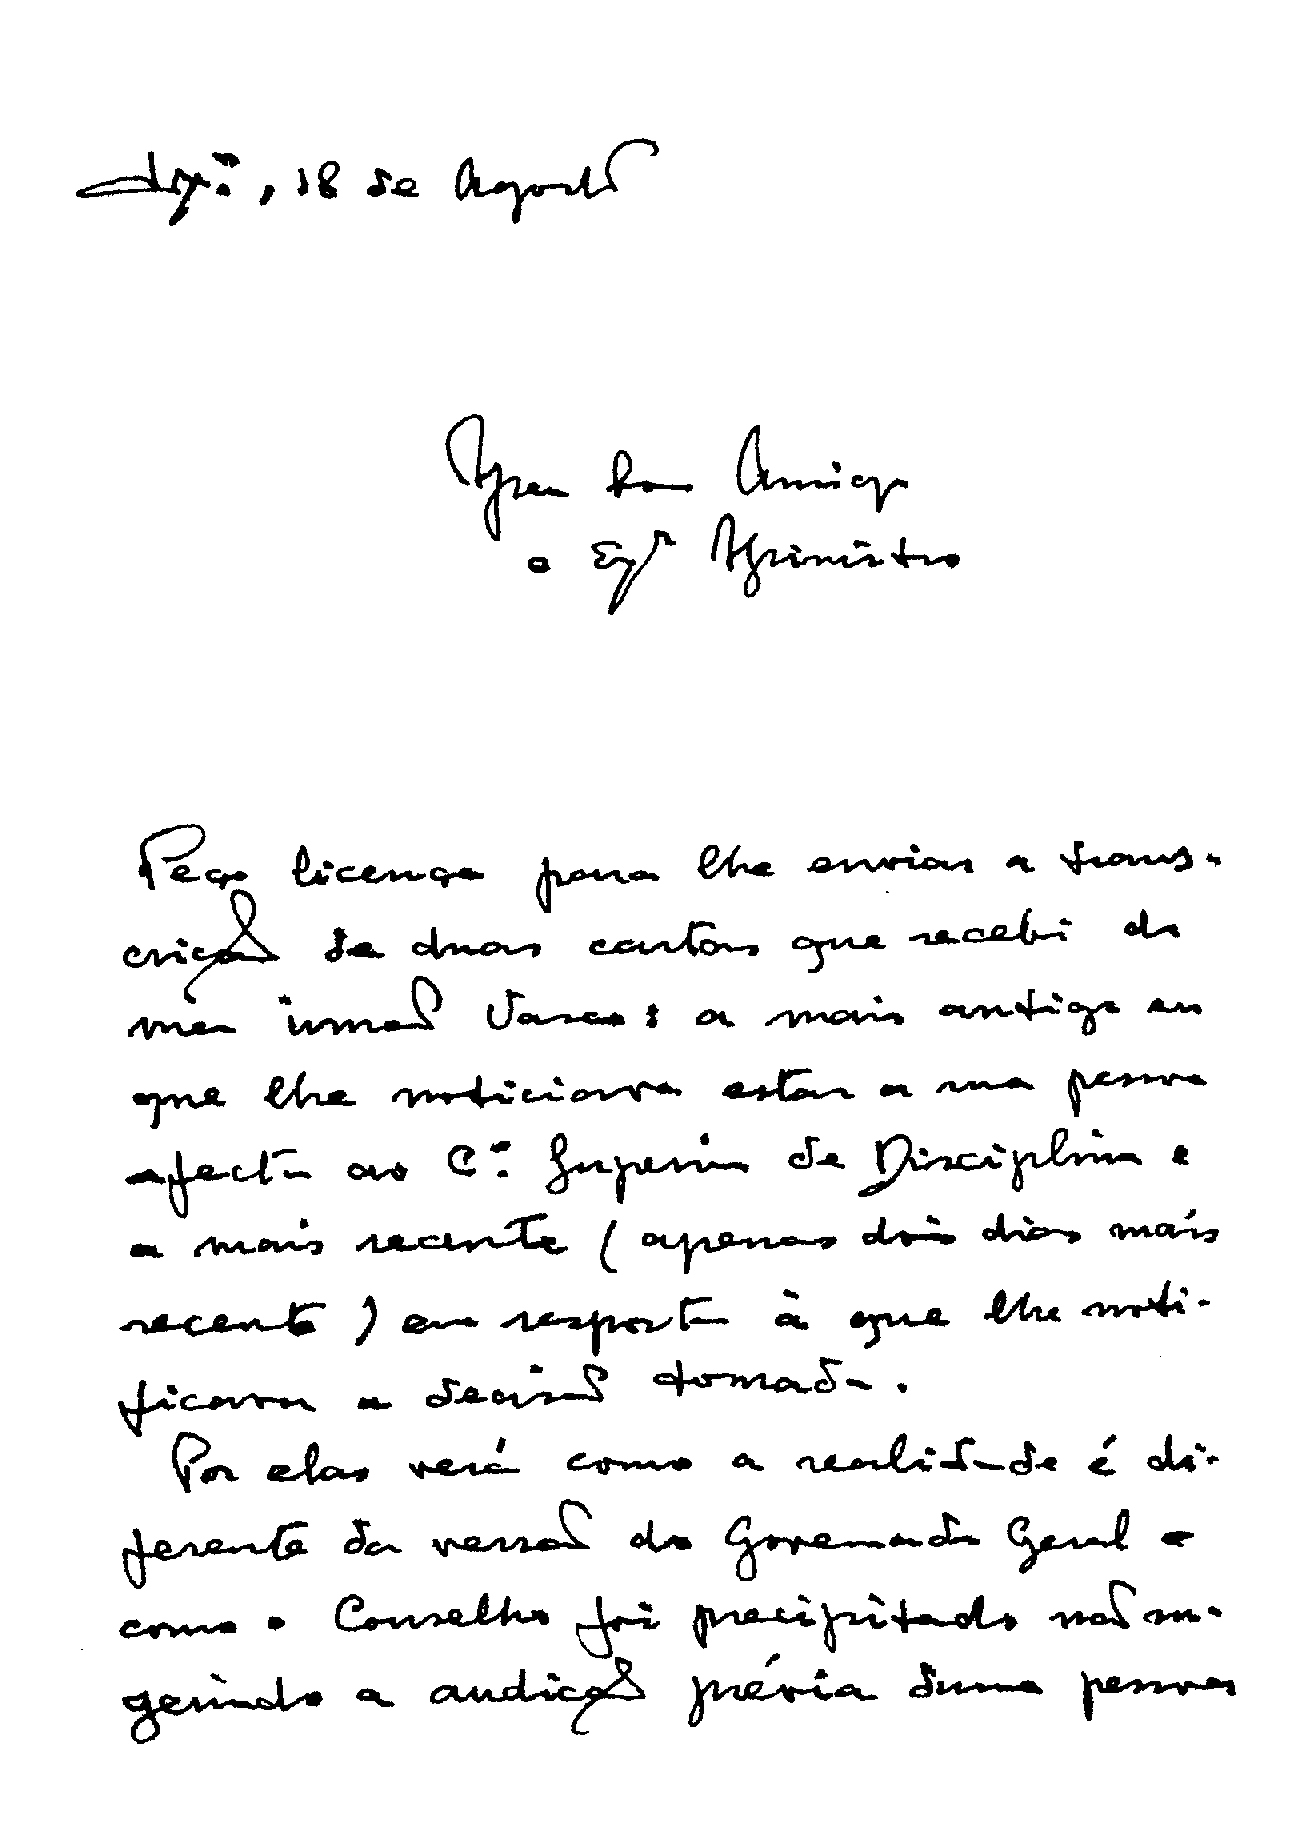 Lxª, 18 de Agosto
Meu bom Amigo
e Exº Ministro
Peço licença para lhe enviar a trans-
crição de duas cartas que recebi do
meu irmão Vasco: a mais antiga em
que lhe noticiava estar a sua pessoa
afecta ao C.º Superior de Disciplina e
a mais recente (apenas dois dias mais
recente) em resposta à que lhe noti-
ficava a decisão tomada.
Por elas verá como a realidade é di-
ferente da versão do Governador Geral e
como o Conselho foi precipitado não su-
gerindo a audição prévia duma pessoa